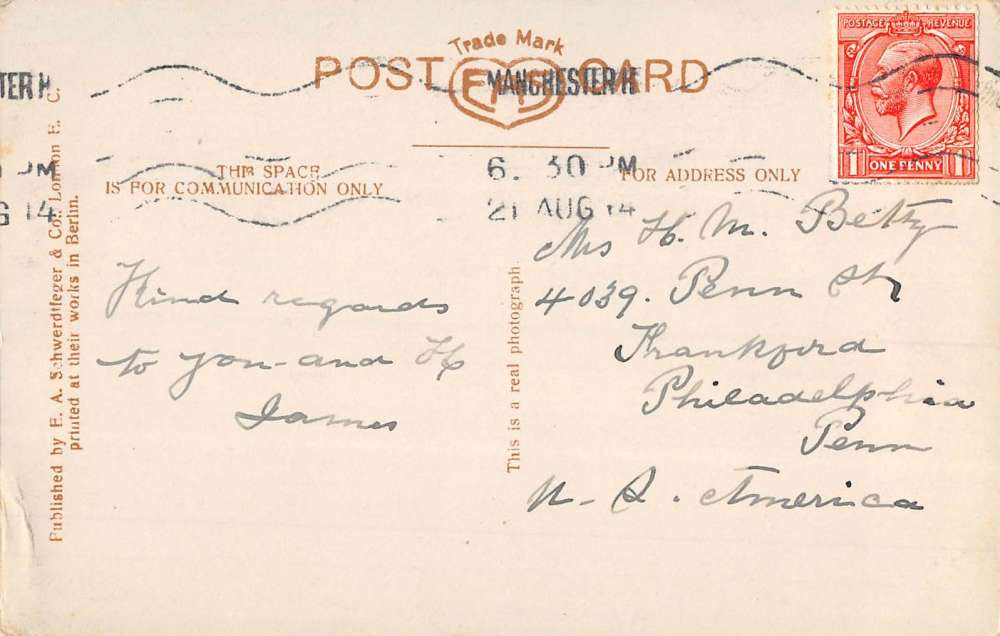 Trade Mark
POST CARD
EAS
MANCHESTER H
TER H
6. 30 PM
21 AUG 14
PM
G 14
POSTAGE REVENUE
1 ONE PENNY 1
THIS SPACE
IS FOR COMMUNICATION ONLY
FOR ADDRESS ONLY
Published by E. A. Schwerdtfeger & Co., London E. C.
printed at their works in Berlin.
Kind regards
to you and H
James
This is a real photograph.
Mrs H. M. Betty
4039. Penn St
Frankford
Philadelphia
Penn
U. S. America